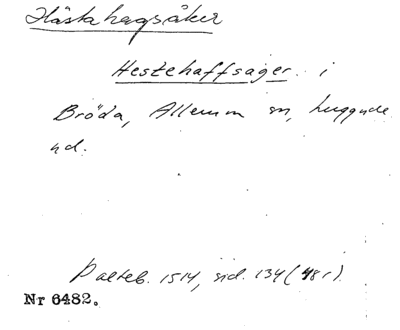 Hästahagsåker
Hestehaffsager i
Bröda, Allerum sn, Luggude
hd.
Palteb. 1514, sid. 134 (48r).
Nr 6482.